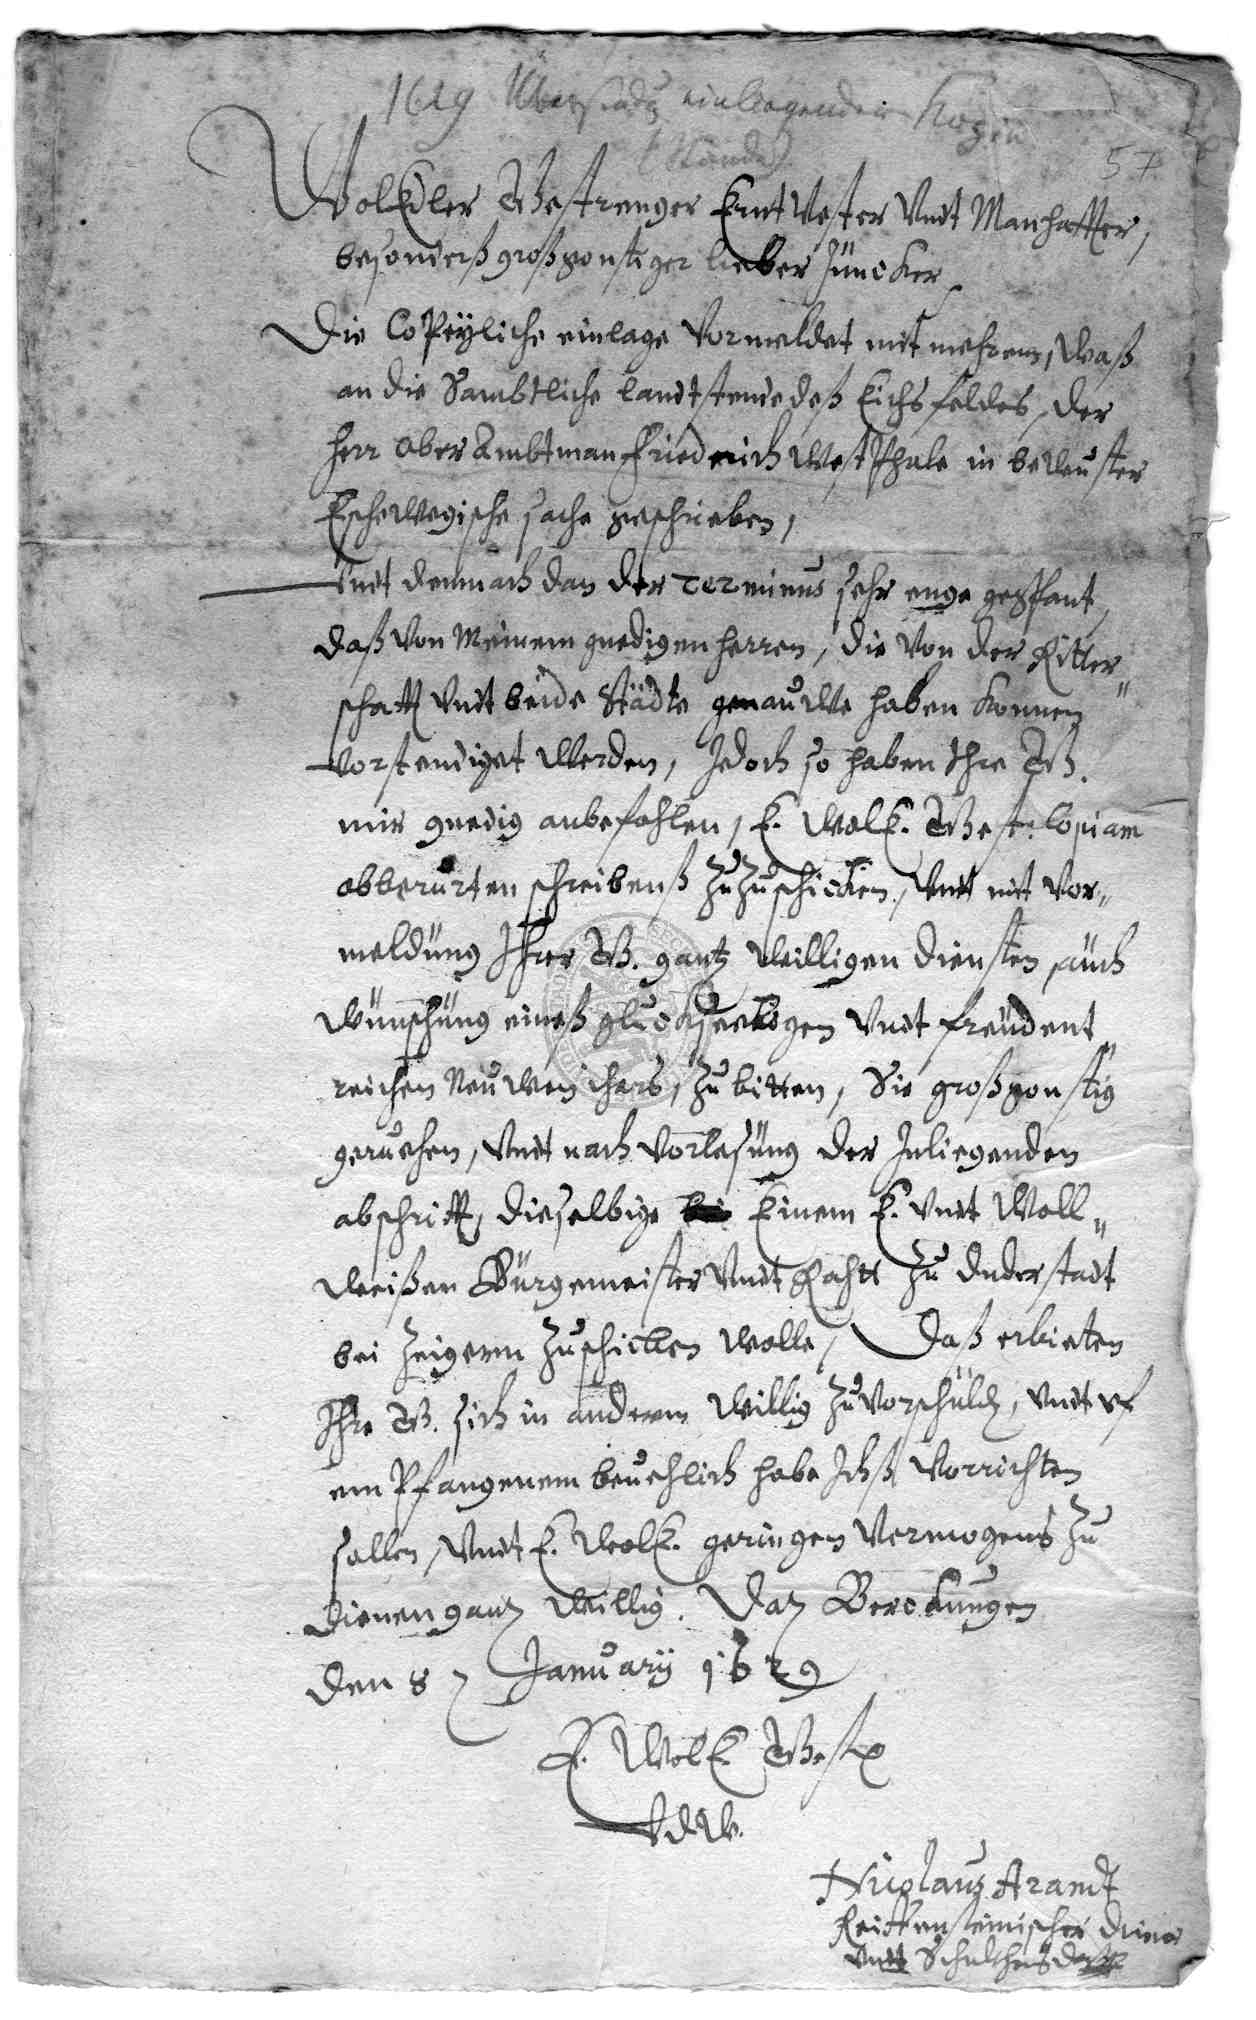 1629
57
WolEdler Gestrenger Ernvester Undt Manhaffter,
besonderß großgonstiger lieber Juncker
Die Copeyliche einlage Vormeldet mit mehrem, Waß
an die Sambtliche landtstende deß Eichsfeldes, der
herr Ober Ambtman Friederich WestPhale in bewuster
Eschewegische sache geschrieben,
Undt demnach dan der Terminus sehr enge gespant,
daß Von Meinem gnedigen herren, die Von der Ritter„
schafft Undt beide Städte genauwe haben konnen
Vorstendiget Werden, Jedoch so haben Ihre G.
mir gnedig anbefohlen, E. WolE. Gest. Copiam
obberurten schreibenß ZuZuschicken, Undt mit Vor„
meldung Ihrer G. gantz Willigen diensten, auch
Wünschung eineß gluckseeligen Undt freudent„
reichen Neuwen Jhars, Zu bitten, Sie großgonstig
geruehen, Undt nach Vorlesung der Inliegenden
abschrifft, dieselbige Einem E. Undt Woll„
Weißen Bürgemeister Undt Rahtt Zu duderstadt
bei Zeigern Zuschicken Wolle, Daß erbieten
Ihre G. sich in anderm Willig Zu Vorschuld, Undt uf
em Pfangenem beuehlich habe Ichß Vorrichten
sollen, Undt E. WolE. geringen Vermogens Zu
dienen gantz Willig. Datz Berckungen
den 8 January 1629
E. WolE. Gest
UdW.
Nicolauß Arandt
Reiffensteinischer diener
Undt Schultheß daß